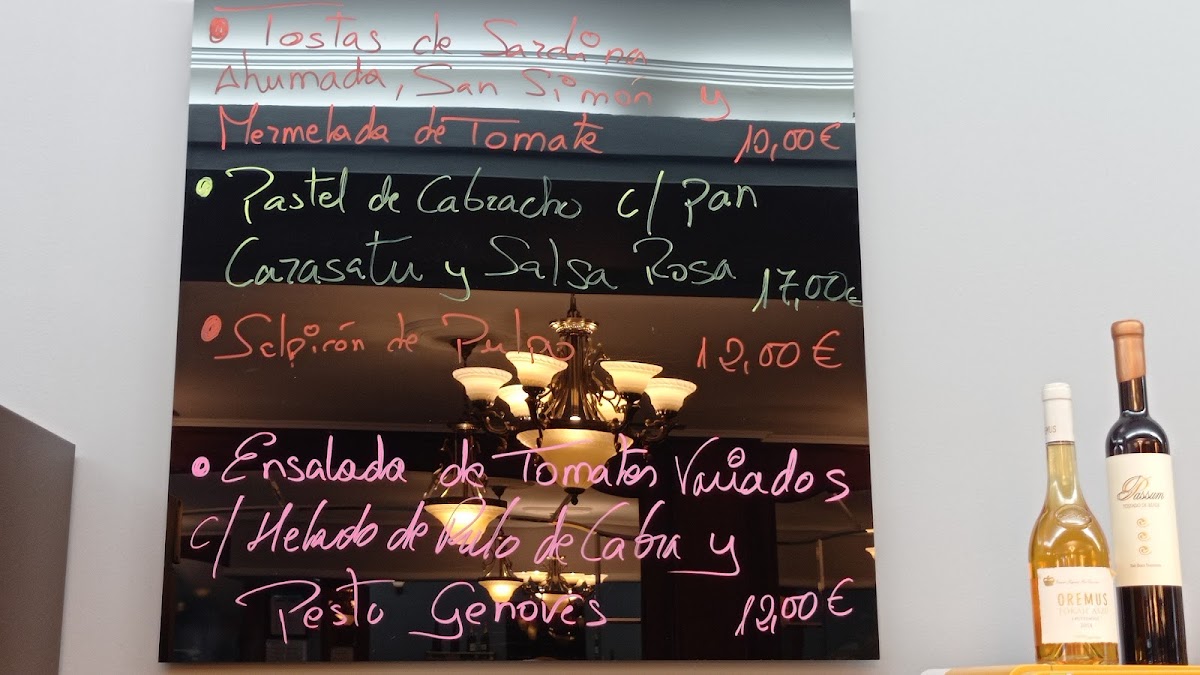 • Tostas de Sardina
Ahumada, San Simón y
Mermelada de Tomate 10,00€
• Pastel de Cabracho c/ Pan
Carasatu y Salsa Rosa 17,00€
• Salpicón de Pulpo 12,00€
• Ensalada de Tomates Variados
c/ Helado de Rulo de Cabra y
Pesto Genovés 12,00€
OREMUS
TOKAJI ASZÚ
Passum